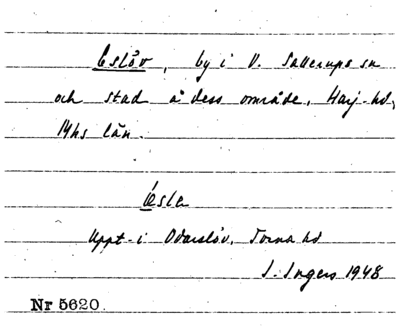 Eslöv, by i V. Sallerups sn
och stad å dess område, Harj. hd,
Mhs län.
Ésla
Uppt. i Odarslöv, Torna hd
I. Ingers 1948
Nr 5620